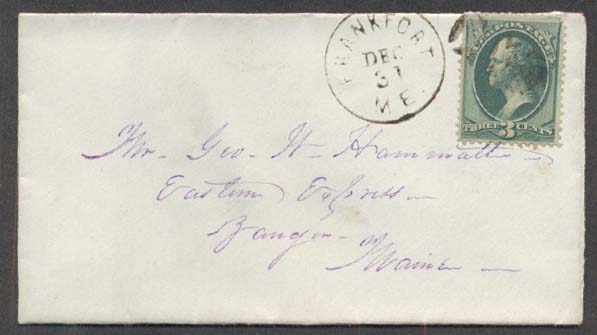 FRANKFORT
DEC
31
ME.
U.S. POSTAGE
THREE 3 CENTS
Mr. Geo. W. Hammatt
Eastern Express
Bangor
Maine